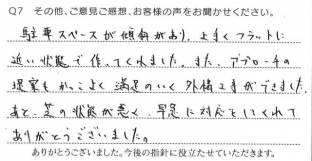 Q7 その他、ご意見ご感想、お客様の声をお聞かせください。
駐車スペースが傾斜があり、上手くフラットに
近い状態で作ってくれました。また、アプローチの
提案もかっこよく満足のいく外構工事ができました。
あと、芝の状態が悪く、早急に対応をしてくれて
ありがとうございました。
ありがとうございました。今後の指針に役立たせていただきます。